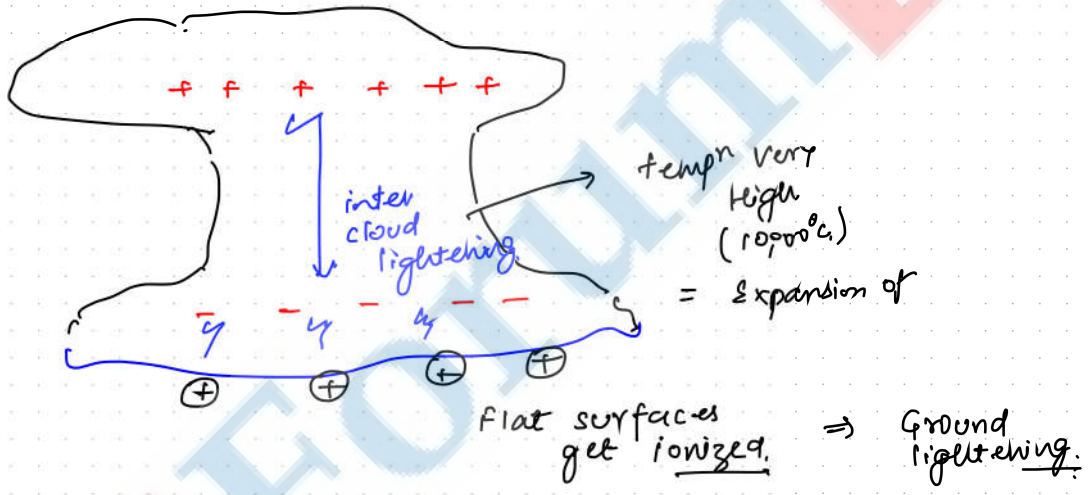 Forum
+ + + + + +
inter
cloud
lightening.
tempn very
High
(10,000°C)
= Expansion of
- - - - -
+ + + +
Flat surfaces
get ionized.
⇒ Ground
lightening.